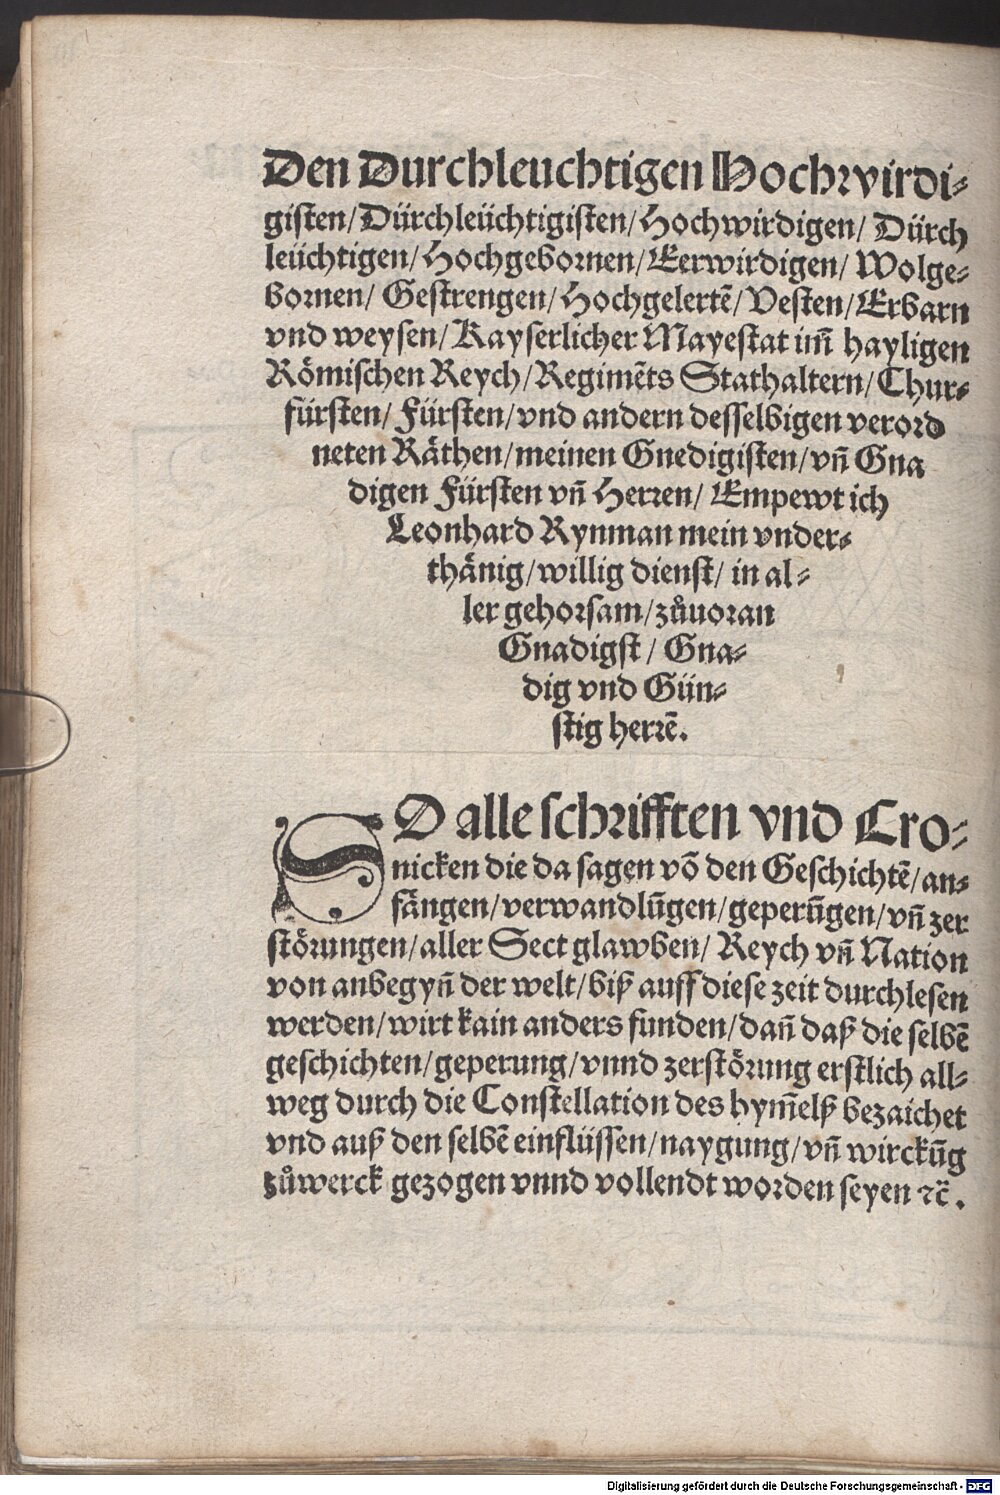 Den Durchleuchtigen Hochwirdi⸗
gisten/Dürchleüchtigisten/Hochwirdigen/ Dürch
leüchtigen/Hochgebornen/Eerwirdigen/ Wolge⸗
bornen/ Gestrengen/Hochgelertē/Vesten/Erbarn
vnd weysen/Kayserlicher Mayestat im̄ hayligen
Römischen Reych/Regimēts Stathaltern/Chur⸗
fürsten/ Fürsten/vnd andern desselbigen verord
neten Räthen/meinen Gnedigisten/vn̄ Gna
digen Fürsten vn̄ Herren/ Empewt ich
Leonhard Rynman mein vnder⸗
thänig/willig dienst/ in al⸗
ler gehorsam/zůuoran
Gnadigst/ Gna⸗
dig vnd Gün⸗
stig herrē.
SO alle schrifften vnd Cro⸗
nicken die da sagen vō den Geschichtē/an⸗
fängen/verwandlūgen/geperūgen/vn̄ zer
störungen/aller Sect glawben/ Reych vn̄ Nation
von anbegyn̄ der welt/biß auff diese zeit durchlesen
werden/wirt kain anders funden/dan̄ daß die selbē
geschichten/geperung/vnnd zerstörung erstlich all⸗
weg durch die Constellation des hym̄elß bezaichet
vnd auß den selbē einflüssen/naygung/vn̄ wirckūg
zůwerck gezogen vnnd vollendt worden seyen ⁊c̄.
Digitalisierung gefördert durch die Deutsche Forschungsgemeinschaft - DFG